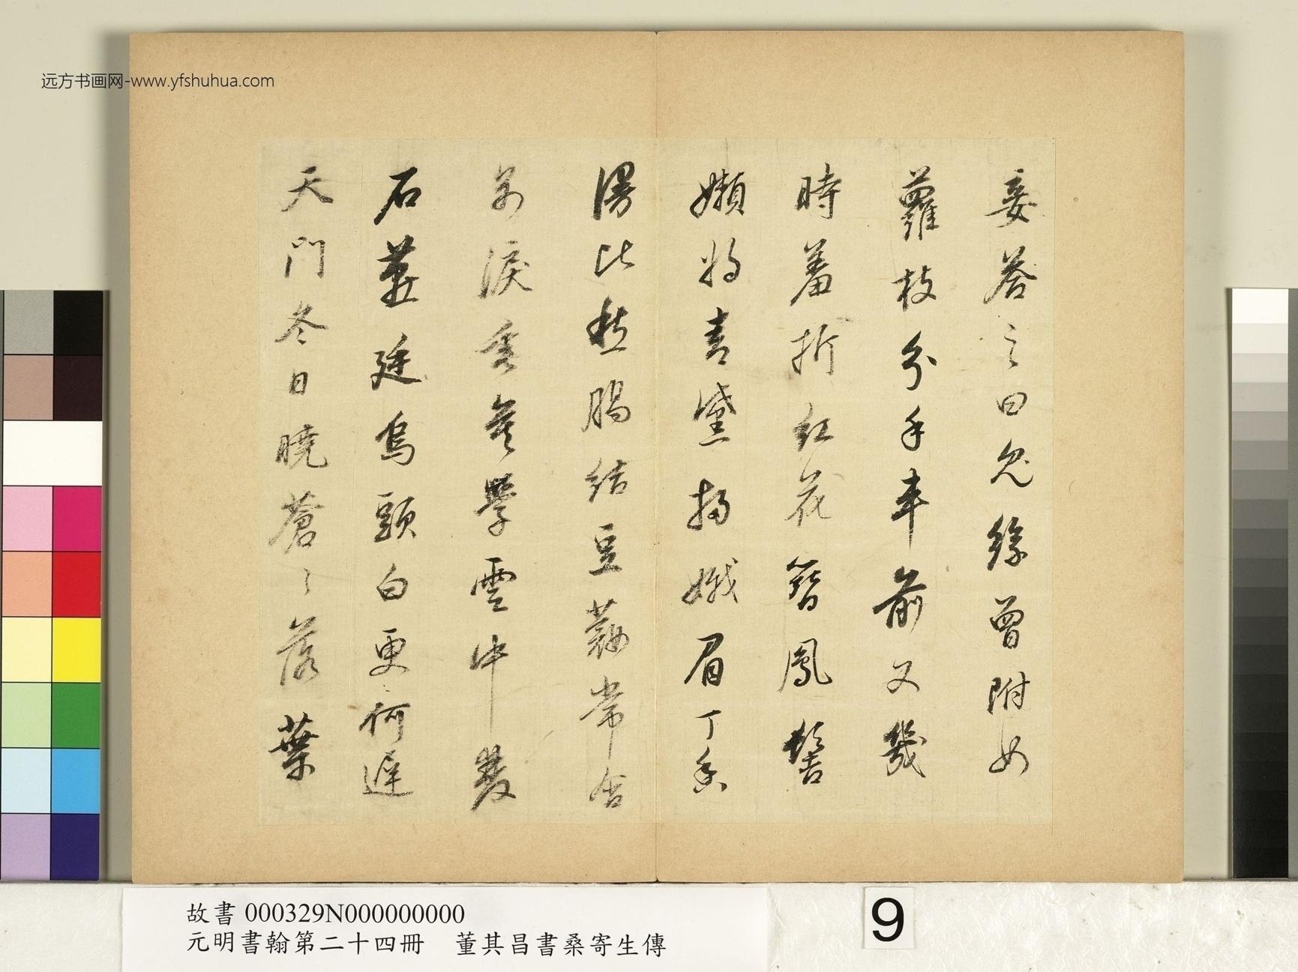 妾答之曰兔絲曾附女
蘿枝分手車前又幾
時羞折紅花簪鳳髻
嬾將青黛掃娥眉丁香
漫比愁腸結豆蔻常含
別淚垂學雲中雙
石燕廷烏頭白更何遲
天門冬日曉蒼々落葉
远方书画网-www.yfshuhua.com
故書 000329N000000000
元明書翰第二十四冊 董其昌書桑寄生傳
9